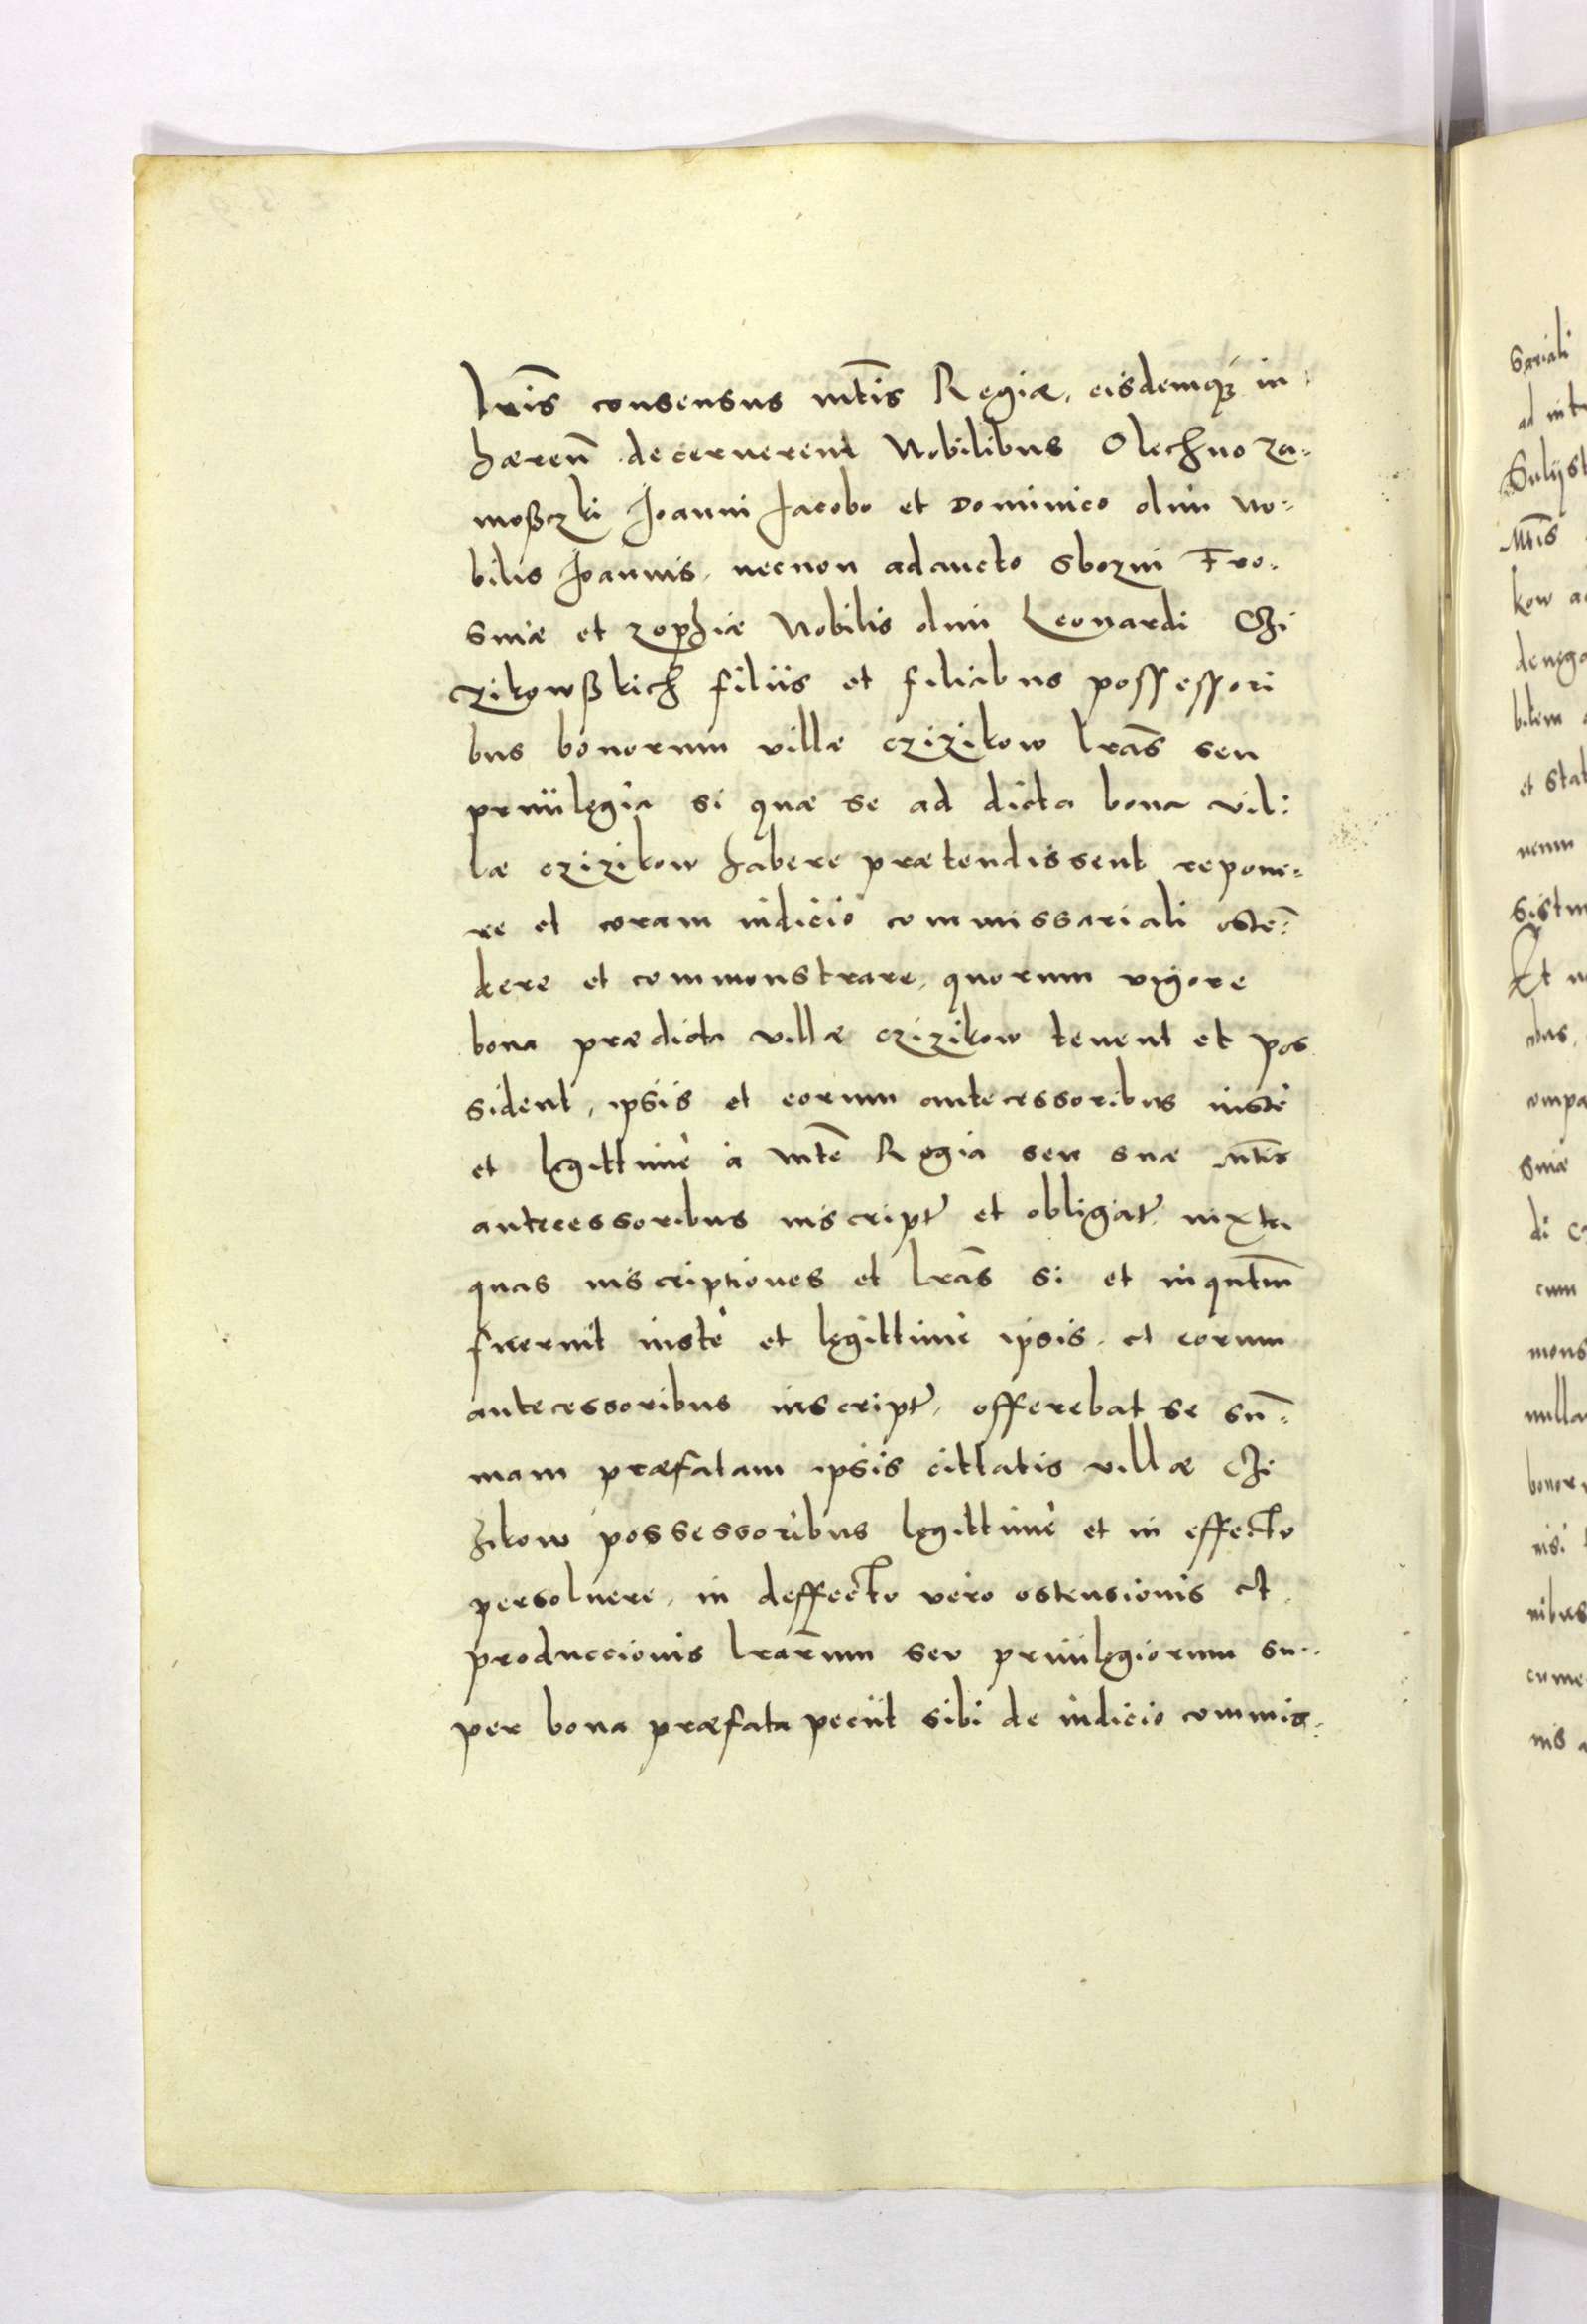 lr̃is consensus mt̃is Regiæ, eisdemq3 in-
hæren̄ decernerent Nobilibus Olechno Za-
moßczki Joanni Jacobo et Dominico olim no-
bilis Joannis, necnon adaucto Sborzni Fro-
sinæ et Zophiæ Nobilis olim Leonardi Chi
czikowßkich filiis et filiabus possessori
bus bonorum villæ czizikow lr̃as seu
priuilegia si quæ se ad dicta bona vil-
læ czizikow habere prætendissent repone-
re et coram iudicio commissariali ostē-
dere et commonstrare, quorum vigore
bona prædicta villæ czizikow tenent et pos
sident, ipsis et eorum antecessoribus iuste
et legittime a mt̃e Regia seu suæ mt̃is
antecessoribus inscript̃ et obligat̃ iuxta
quas inscriptiones et lr̃as si et inqntm̃
fuerint iuste et legittime ipsis et eorum
antecessoribus inscript̃, offerebat se sum̃-
mam præfatam ipsis cittatis villæ Chi
zikow possessoribus legittime et in effectu
persoluere, in deffectu vero ostensionis et
produccionis lr̃arum seu priuilegiorum su-
per bona præfata peciit sibi de iudicio commis-
sariali
denega
bitem
et stat
sistu
Et
compa
sinæ
di
cum
mons
nulla
nisi
nibus
nis